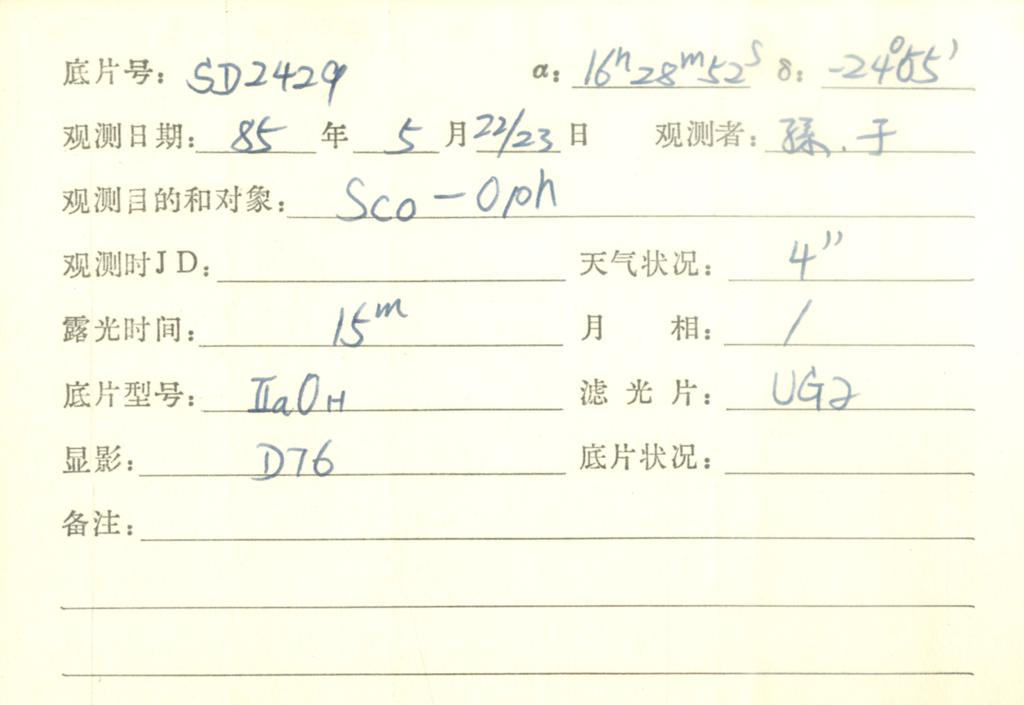 底片号: SD2429 α: 16h28m52s δ: -24°05'
观测日期: 85 年 5 月 22/23 日 观测者: 孫、于
观测目的和对象: Sco-Oph
观测时JD: 天气状况: 4"
露光时间: 15m 月 相: /
底片型号: IIaOH 滤光片: UG2
显影: D76 底片状况:
备注: